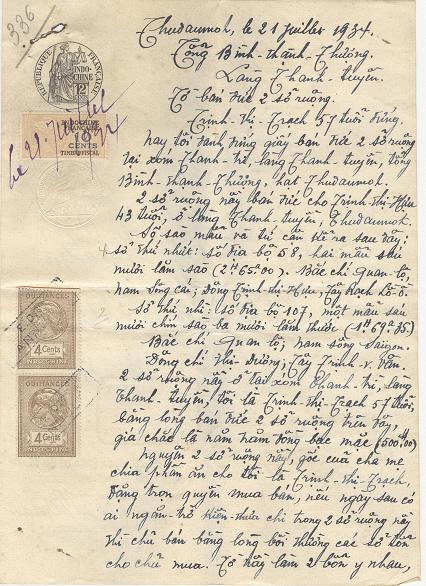 336
RÉPUBLIQUE FRANÇAISE
INDO-CHINE
12
INDOCHINE FRANÇAISE
CENTS
TIMBRE FISCAL
Thudaumot, le 21 juillet 1934.
Tổng Bình-thạnh-Thượng.
Làng Thanh-tuyền.
Tờ bán đức 2 sở ruộng.
Trịnh-thị-Trạch 57 tuổi đứng.
nay tôi đành đứng giấy bán đức 2 sở ruộng
tại xóm Thanh-trì, làng Thanh-tuyền, tổng
Bình-thạnh-Thượng, hạt Thudaumot.
2 sở ruộng này bán đức cho Trịnh-thị-Hữu
43 tuổi, ở làng Thanh-tuyền, Thudaumot.
Số sào mẫu và tứ cận kể ra sau đây:
số thứ nhứt: số địa bộ 58, hai mẫu sáu
mười lăm sào (2H65a00). Bắc chỉ Quan-lộ,
nam Sông cái; Đông Trịnh-thị-Hữu; Tây Rạch
Số thứ nhì: số địa bộ 107, một mẫu sáu
mươi chín sào ba mươi lăm thước (1H69a35)
Bắc chỉ Quan lộ; nam sông Saigon.
Đông chỉ Thị-Dương; Tây Trịnh-v. Văn.
2 sở ruộng này ở tại xóm Thanh-trì, làng
Thanh-tuyền, tôi là Trịnh-thị-Trạch 57 tuổi,
bằng lòng bán đức 2 sở ruộng trên đây,
giá chắc là năm trăm đồng bạc mặc (500$00)
nguyên 2 sở ruộng này, gốc của cha mẹ
chia phần ăn cho tôi là Trịnh-thị-Trạch,
đặng trọn quyền mua bán, nếu ngày sau có
ai ngăn-trở kiện-thưa chi trong 2 sở ruộng này
thì chủ bán bằng lòng bồi thường các số tổn
cho chủ mua. Tờ này làm 2 bổn y nhau,
QUITTANCES
4 Cents
INDO-CHINE
QUITTANCES
4 Cents
INDO-CHINE